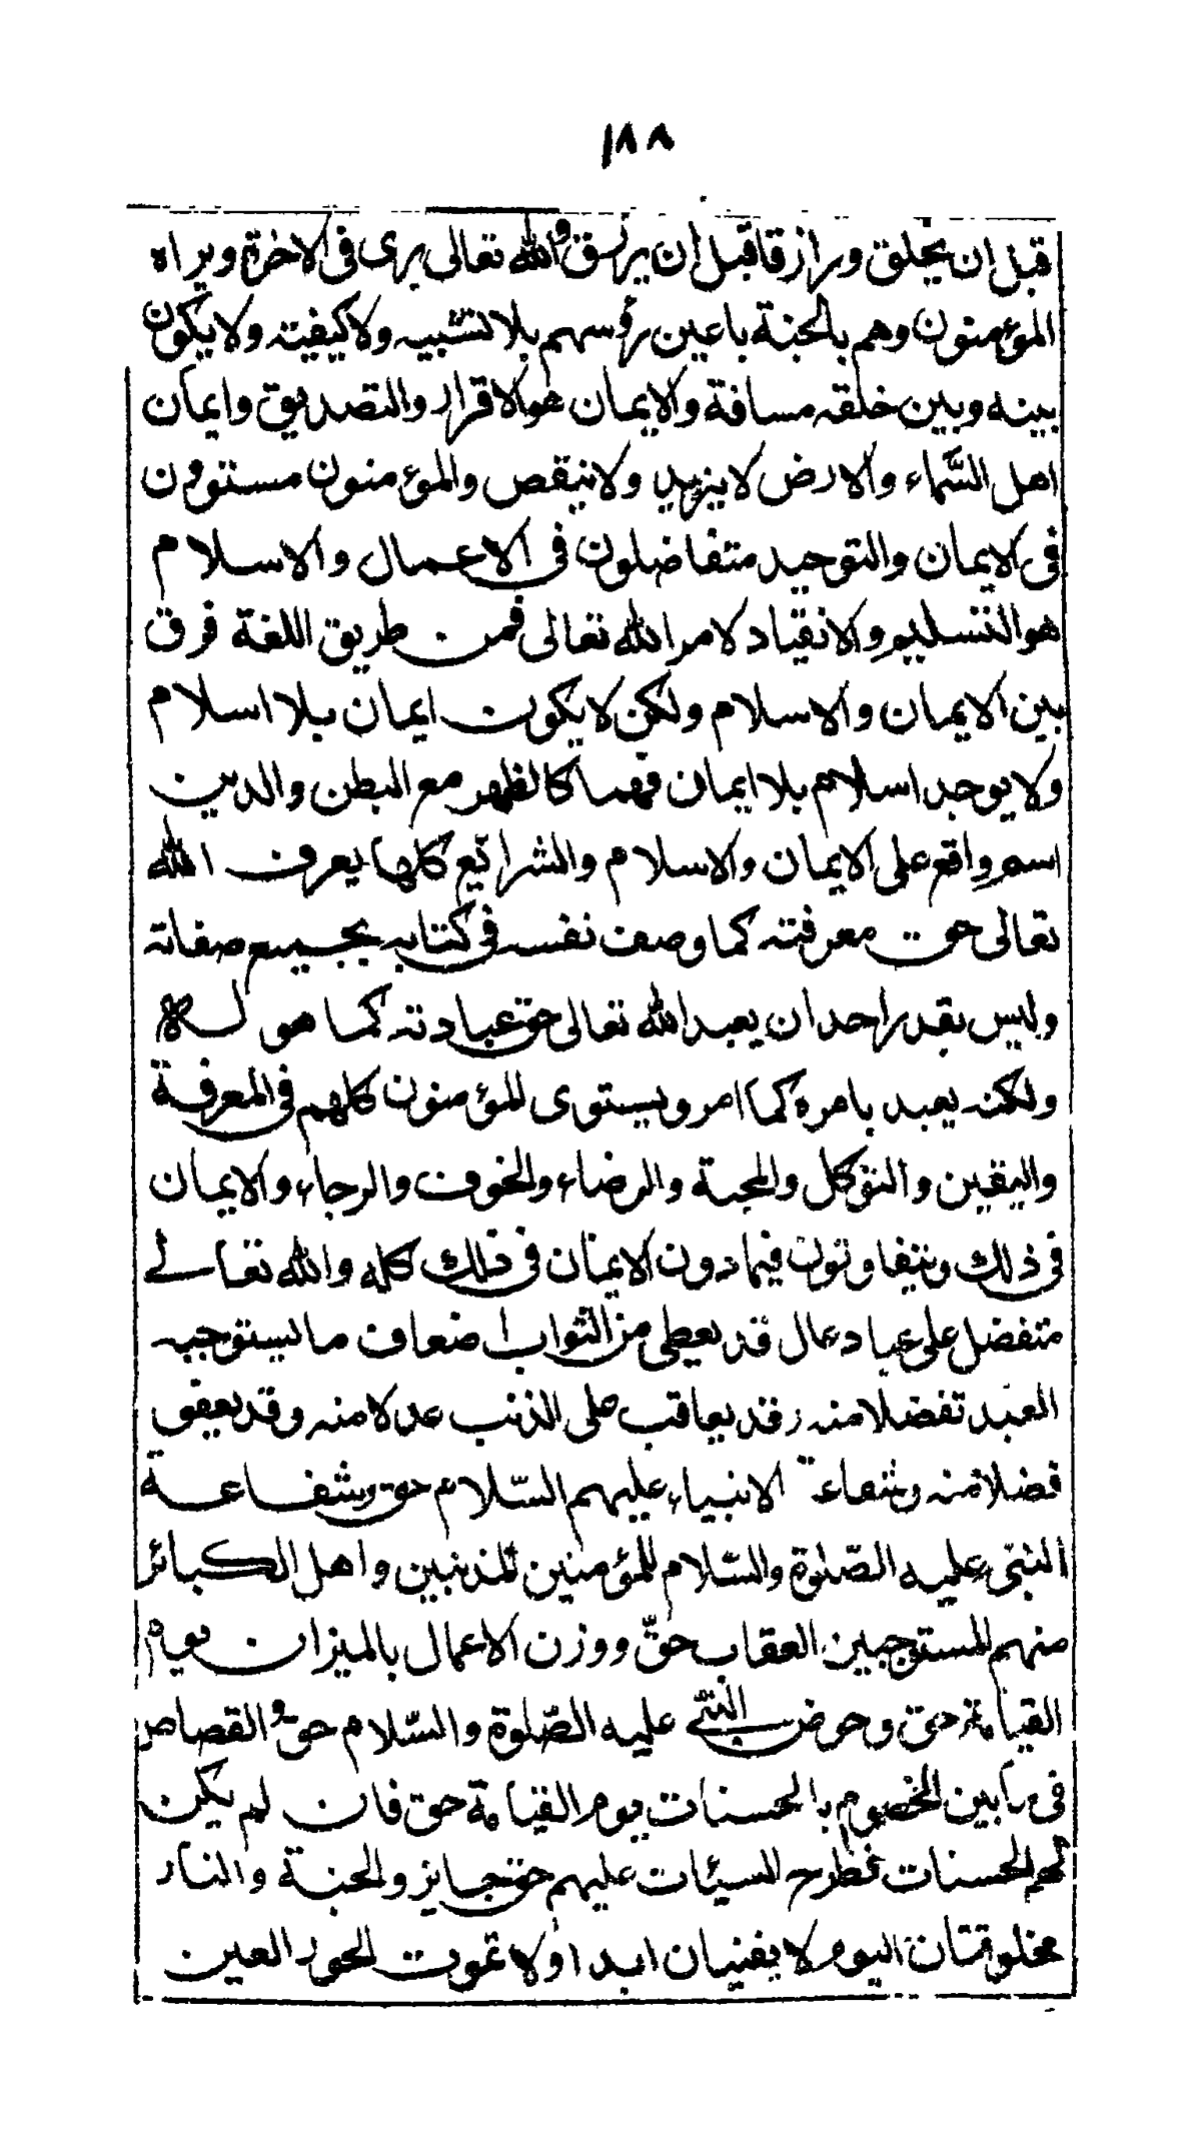 ١٨٨
قبل ان يخلق ورازقا قبل ان يرزق والله تعالى يرى فى الاخرة ويراه
المؤمنون وهم بالجنة باعين رؤسهم بلا تشبيه ولا كيفية ولا يكون
بينه وبين خلقه مسافة والايمان هو الاقرار والتصديق وايمان
اهل السّماء والارض لا يزيد ولا ينقص والمؤمنون مستوون
فى الايمان والتوحيد متفاضلون فى الاعمال والاسلام
هو التسليم والانقياد لامر الله تعالى فمن طريق اللغة فرق
بين الايمان والاسلام ولكن لا يكون ايمان بلا اسلام
ولا يوجد اسلام بلا ايمان فهما كالظهر مع البطن والدين
اسم واقع على الايمان والاسلام والشرائع كلها يعرف الله
تعالى حق معرفته كما وصف نفسه فى كتابه بجميع صفاته
وليس بقدر احد ان يعبد الله تعالى حق عبادته كما هو له
ولكنه يعبد بامره كما امر ويستوى المؤمنون كلهم فى المعرفة
واليقين والتوكل والمحبة والرضاء والخوف والرجاء والايمان
فى ذلك ويتفاوتون فيما دون الايمان فى ذلك كله والله تعالى
متفضل على عباد عمال قد يعطى من الثواب اضعاف ما يستوجبه
العبد تفضلا منه وقد يعاقب على الذنب عدلا منه وقد يعفو
فضلا منه وشفاعة الانبياء عليهم السّلام حق وشفاعة
النبى عليه الصّلوة والسّلام للمؤمنين المذنبين واهل الكبائر
منهم المستوجبين العقاب حقّ ووزن الاعمال بالميزان يوم
القيامة حق وحوض النبىّ عليه الصّلوة والسّلام حق والقصاص
فى ما بين الخصوم بالحسنات يوم القيامة حق فان لم يكن
لهم الحسنات فطرح السيئات عليهم حق جايز والجنة والنار
مخلوقتان اليوم لا يفنيان ابدا ولا تموت الحور العين